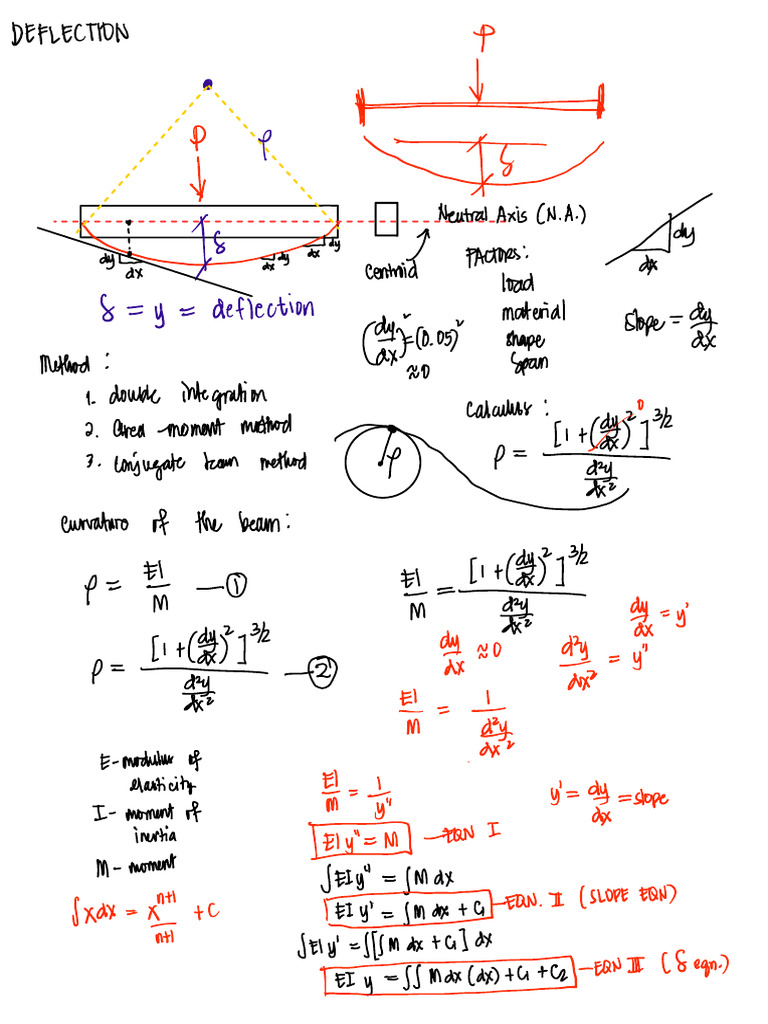 DEFLECTION
P
P
ρ
δ
δ
dy
dx
dx
dy
dx
dy
Neutral Axis (N.A.)
centroid
dy
dx
δ = y = deflection
FACTORS:
load
material
shape
span
(dy/dx)² = (0.05)²
≈ 0
slope = dy/dx
Method:
1. double integration
2. area-moment method
3. conjugate beam method
calculus:
ρ = [1 + (dy/dx)²]^3/2 / d²y/dx²
0
ρ
curvature of the beam:
ρ = EI/M — ①
ρ = [1 + (dy/dx)²]^3/2 / d²y/dx² — ②
EI/M = [1 + (dy/dx)²]^3/2 / d²y/dx²
dy/dx = y'
dy/dx ≈ 0
d²y/dx² = y"
EI/M = 1 / d²y/dx²
E - modulus of
elasticity
I - moment of
inertia
M - moment
∫xdx = x^n+1 / n+1 + C
EI/M = 1/y"
y' = dy/dx = slope
EI y" = M — EQN I
∫EI y" = ∫M dx
EI y' = ∫M dx + C₁ — EQN. II (SLOPE EQN)
∫EI y' = ∫[∫M dx + C₁] dx
EI y = ∫∫ M dx (dx) + C₁ + C₂ — EQN III (δ eqn.)